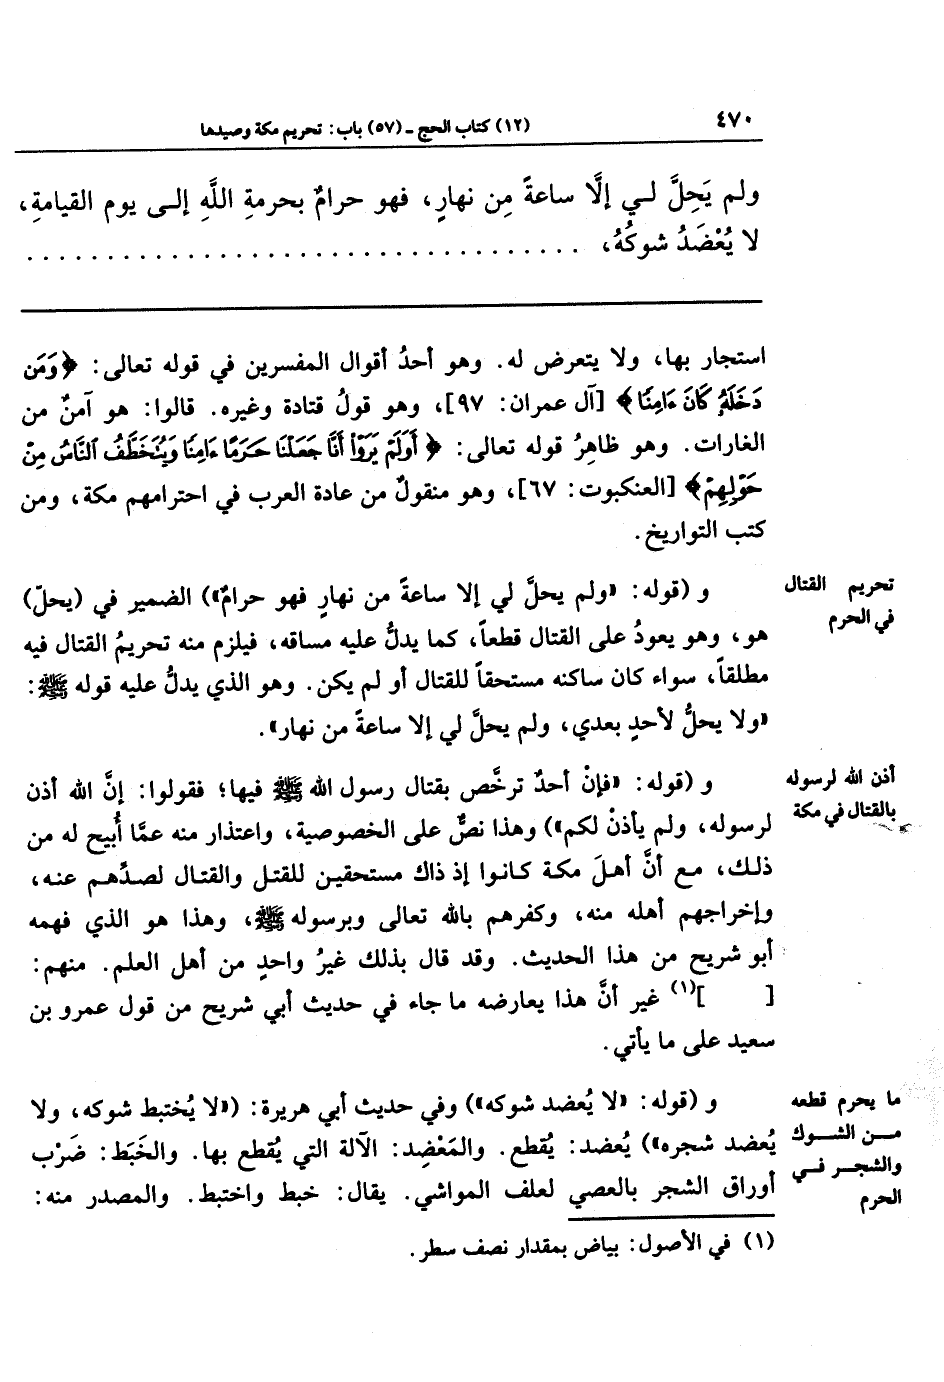 (١٢) كتاب الحج ـ (٥٧) باب: تحريم مكة وصيدها
٤٧٠
ولم يَحِلَّ لـي إلَّا ساعةً مِن نهارٍ، فهو حرامٌ بحرمةِ اللَّهِ إلـى يوم القيامةِ،
لا يُعْضَدُ شوكُهُ، . . . . . . . . . . . . . . . . . . . . . . . . . . . . . . . . . . . .
استجار بها، ولا يتعرض له. وهو أحدُ أقوال المفسرين في قوله تعالى: ﴿وَمَن
دَخَلَهُۥ كَانَ ءَامِنًا﴾ [آل عمران: ٩٧]، وهو قولُ قتادة وغيره. قالوا: هو آمنٌ من
الغارات. وهو ظاهِرُ قوله تعالى: ﴿أَوَلَمْ يَرَوْا۟ أَنَّا جَعَلْنَا حَرَمًا ءَامِنًا وَيُتَخَطَّفُ ٱلنَّاسُ مِنْ
حَوْلِهِمْ﴾ [العنكبوت: ٦٧]، وهو منقولٌ من عادة العرب في احترامهم مكة، ومن
كتب التواريخ.
تحريم القتال
في الحرم
و (قوله: «ولم يحلَّ لي إلا ساعةً من نهارٍ فهو حرامٌ») الضمير في (يحلّ)
هو، وهو يعودُ على القتال قطعاً، كما يدلُّ عليه مساقه، فيلزم منه تحريمُ القتال فيه
مطلقاً، سواء كان ساكنه مستحقاً للقتال أو لم يكن. وهو الذي يدلُّ عليه قوله ﷺ:
«ولا يحلُّ لأحدٍ بعدي، ولم يحلَّ لي إلا ساعةً من نهار».
أذن الله لرسوله
بالقتال في مكة
و (قوله: «فإنْ أحدٌ ترخَّص بقتال رسول الله ﷺ فيها؛ فقولوا: إنَّ الله أذن
لرسوله، ولم يأذنْ لكم») وهذا نصٌّ على الخصوصية، واعتذار منه عمَّا أُبيح له من
ذلـك، مـع أنَّ أهـلَ مكة كـانـوا إذ ذاك مستحقيـن للقتـل والقتـال لصدِّهـم عنـه،
وإخراجهم أهله منه، وكفرهم بالله تعالى وبرسوله ﷺ، وهذا هو الذي فهمه
أبو شريح من هذا الحديث. وقد قال بذلك غيرُ واحدٍ من أهل العلم. منهم:
[ ](١) غير أنَّ هذا يعارضه ما جاء في حديث أبي شريح من قول عمرو بن
سعيد على ما يأتي.
ما يحرم قطعه
مـن الشـوك
والشجـر فـي
الحرم
و (قوله: «لا يُعضد شوكه») وفي حديث أبي هريرة: («لا يُختبط شوكه، ولا
يُعضد شجره») يُعضد: يُقطع. والمَعْضِد: الآلة التي يُقطع بها. والخَبَط: ضَرْب
أوراق الشجر بالعصي لعلف المواشي. يقال: خبط واختبط. والمصدر منه:
(١) في الأصول: بياض بمقدار نصف سطر.